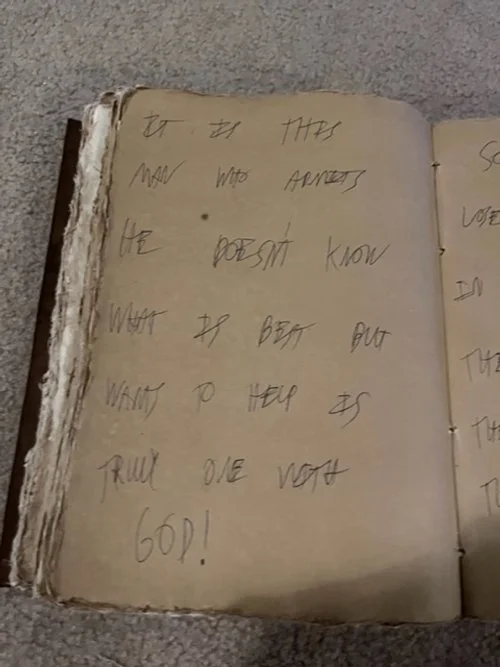 IT IS THIS
MAN WHO ADMITS
HE DOESN'T KNOW
WHAT IS BEST BUT
WANTS TO HELP IS
TRULY ONE WITH
GOD!
SO
LOSE
IN
THE